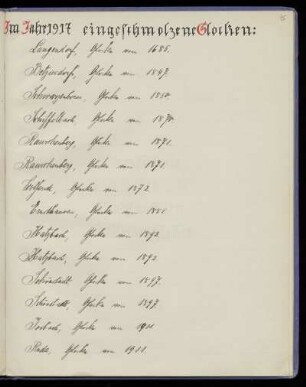 Im Jahre 1917 eingeschmolzene Glocken:
Langendorf, Glocke von 1686.
Betziesdorf, Glocke von 1847.
Schwarzenborn, Glocke von 1850.
Schiffelbach, Glocke von 1870.
Rauschenberg, Glocke von 1871.
Rauschenberg, Glocke von 1871.
Glocke von 1872.
Emsdhausen, Glocke von 1881
Hatzbach, Glocke von 1892
Hatzbach, Glocke von 1893
Schönstadt, Glocke von 1897.
Schönstadt, Glocke von 1897.
Josbach, Glocke von 1911
Roda, Glocke von 1911.